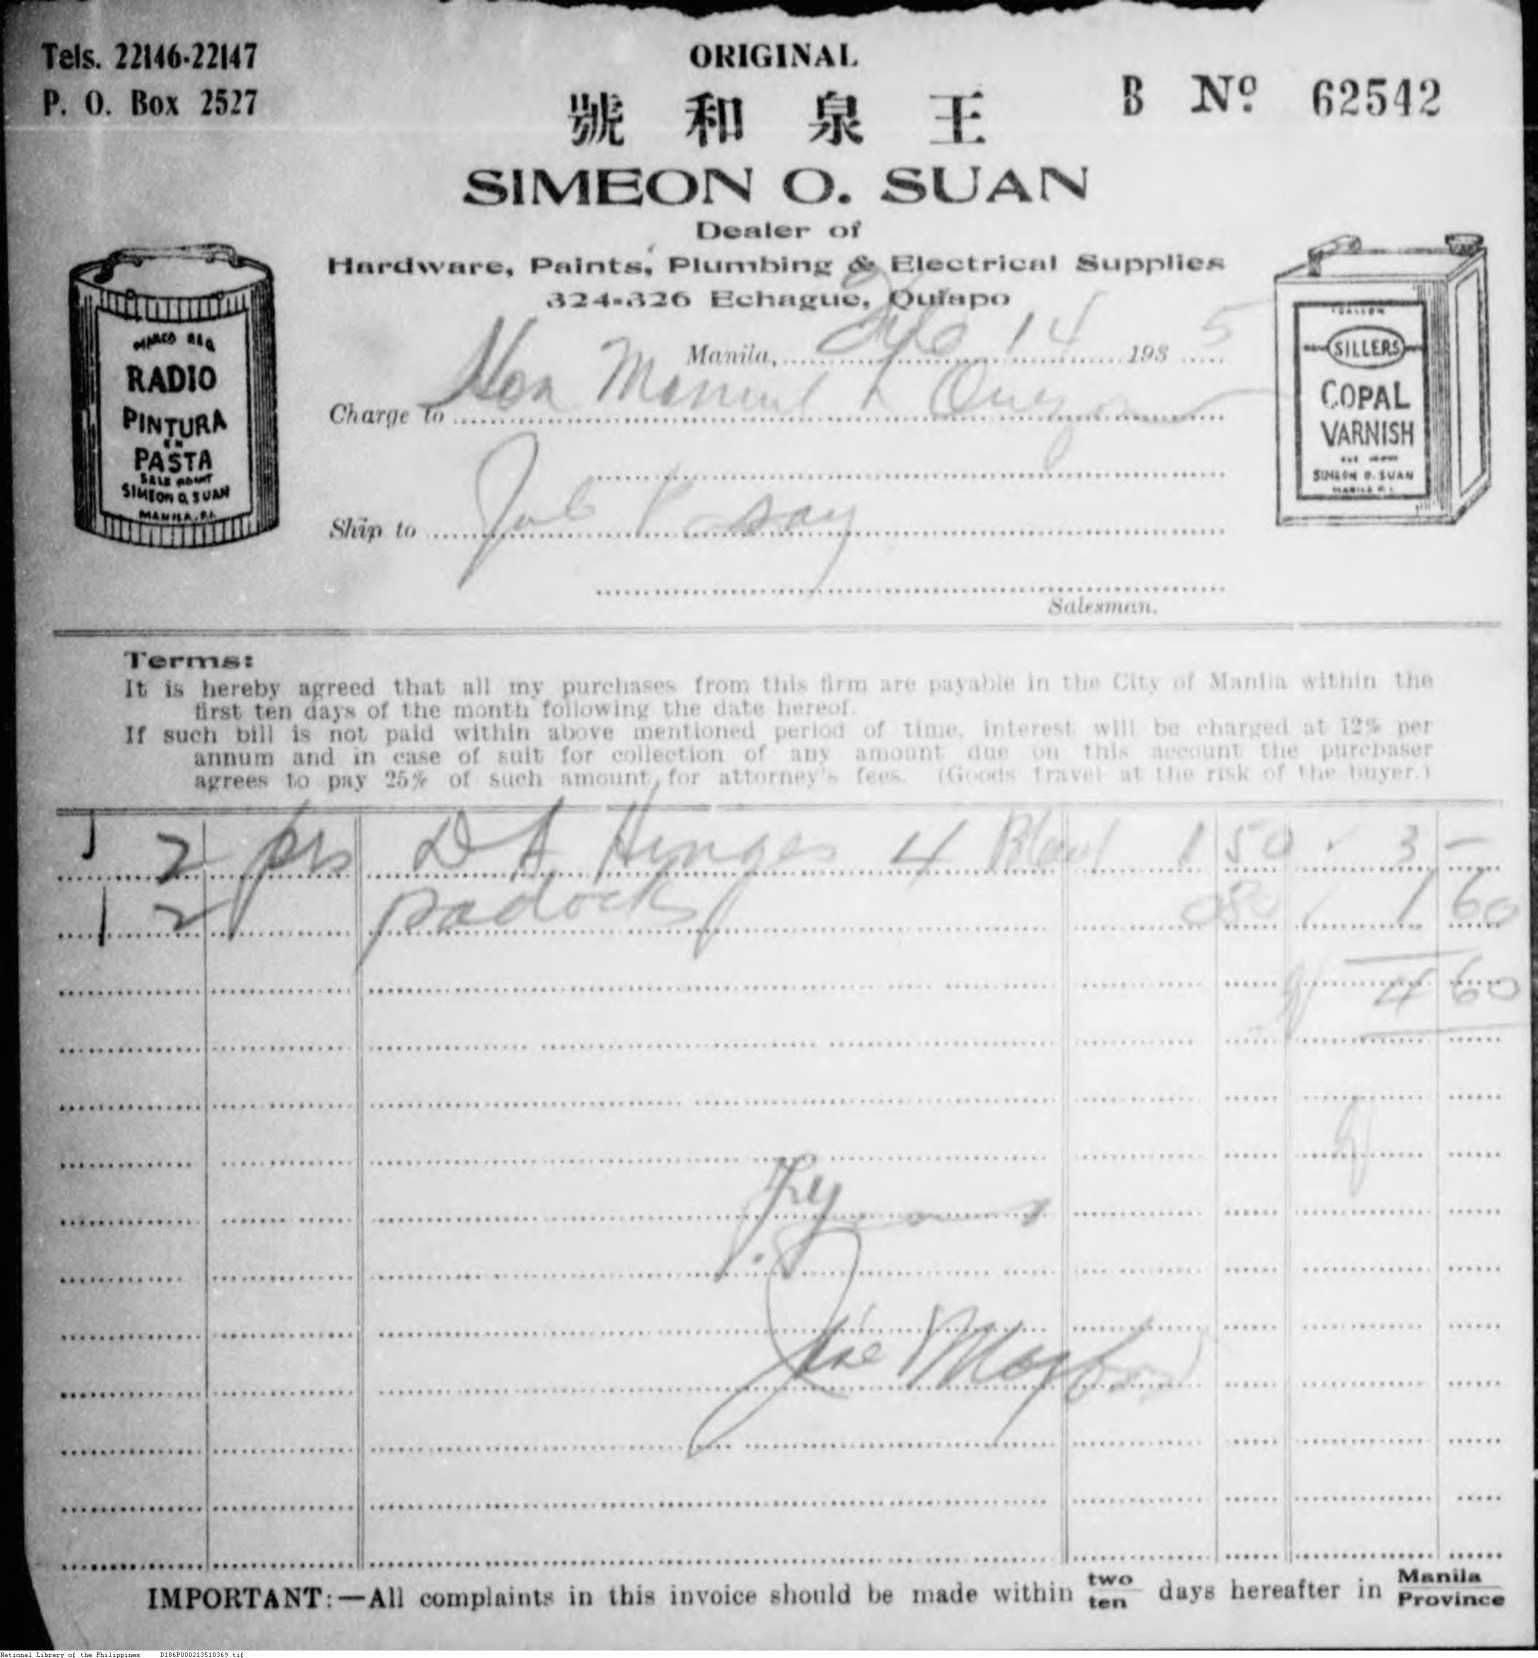 Tels. 22146-22147
P. O. Box 2527
ORIGINAL
號和泉王
B Nº 62542
SIMEON O. SUAN
Dealer of
Hardware, Paints, Plumbing & Electrical Supplies
324-326 Echague, Quiapo
RADIO
PINTURA
EN
PASTA
SIMEON O. SUAN
MANILA, P.I.
1 GALLON
SILLERS
COPAL
VARNISH
SIMEON O. SUAN
MANILA P. I.
Manila, 14 193 5
Charge to Hon Manuel L Quezon
Ship to Job P Say
Salesman.
Terms:
It is hereby agreed that all my purchases from this firm are payable in the City of Manila within the
first ten days of the month following the date hereof.
If such bill is not paid within above mentioned period of time, interest will be charged at 12% per
annum and in case of suit for collection of any amount due on this account the purchaser
agrees to pay 25% of such amount for attorney's fees. (Goods travel at the risk of the buyer.)
2 prs D A Hinges 4 1 50 3 -
2 padocks 080 1 60
4 60
Jose
IMPORTANT:—All complaints in this invoice should be made within two ten days hereafter in Manila Province
National Library of the Philippines D186P000213510369.tif